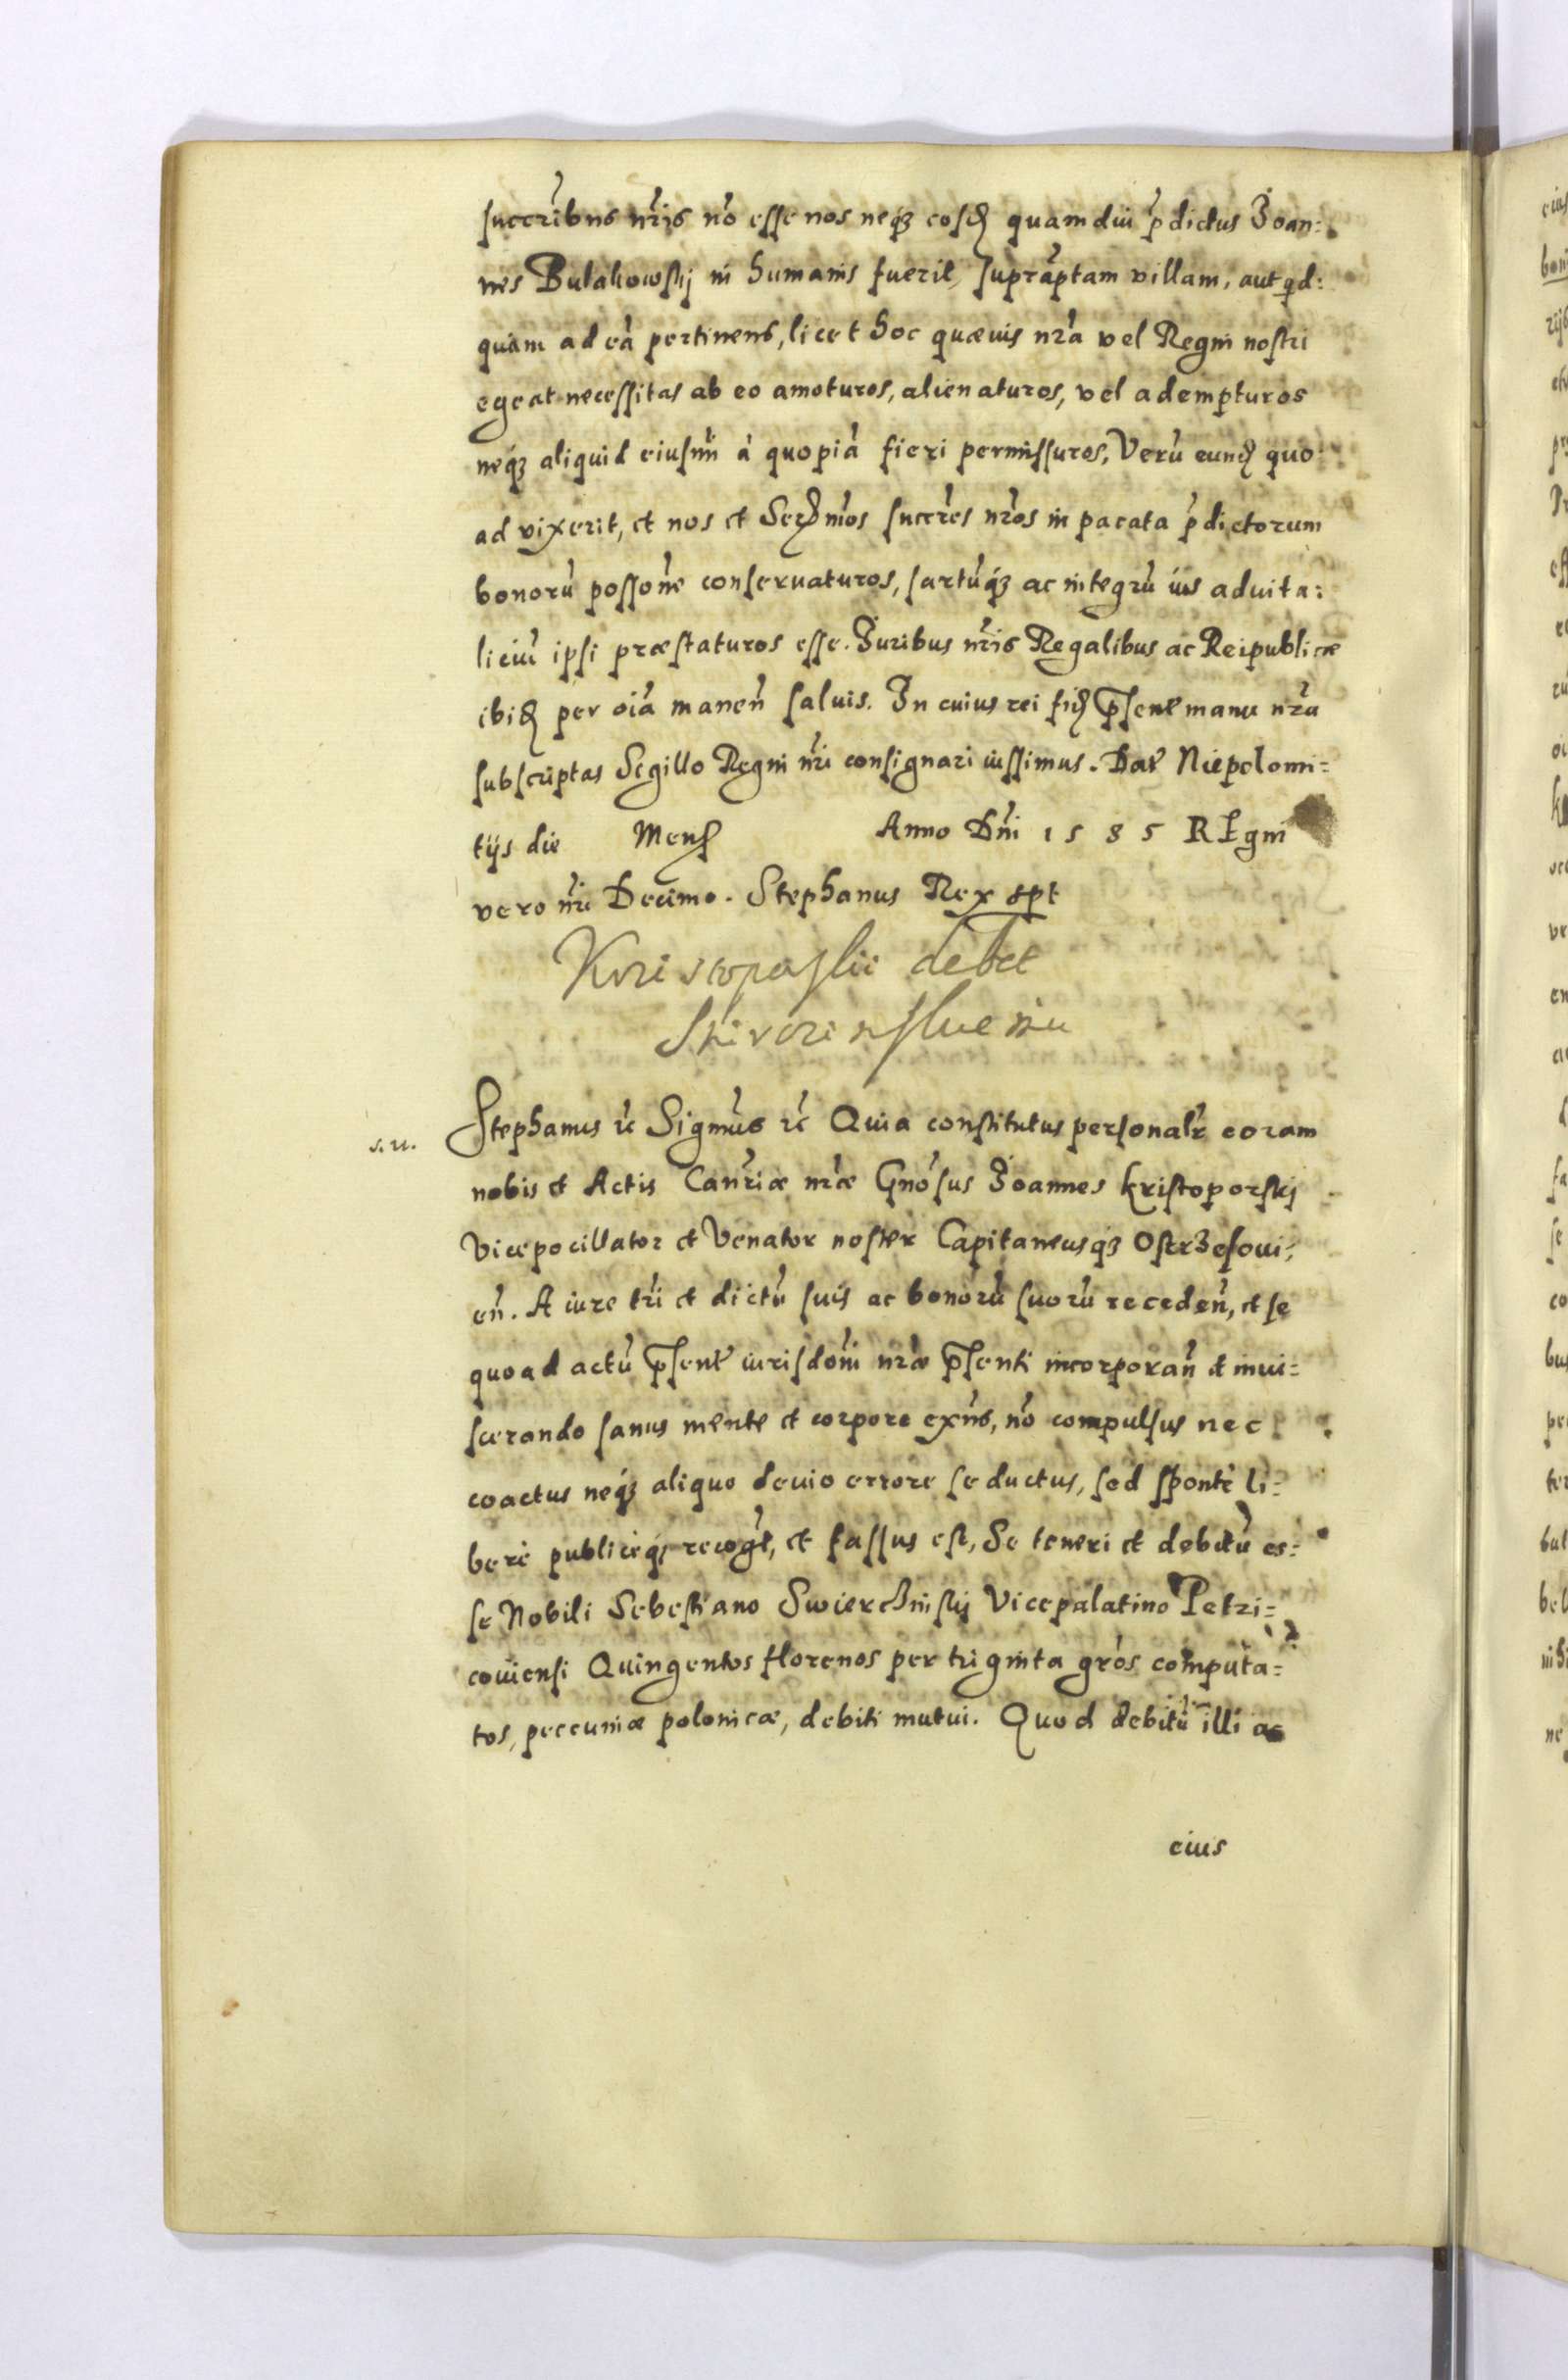 succr̃ibus nr̃is nõ esse nos neq₃ eosd̃ quam diu p̃dictus Joan=
nes Bulakowskij in humanis fuerit, supraptam villam, aut qd=
quam ad eã pertinens, licet hoc quævis nr̃a vel Regni nostri
egeat necessitas ab eo amoturos, alienaturos, vel adempturos
neq₃ aliquid eiusm̃i à quopiã fieri permissuros, Verũ eund̃ quo
ad vixerit, et nos et Ser̃mos succr̃es nr̃os in pacata p̃dictorum
bonorũ posso͠ne conservaturos, sartũq₃ ac integrũ ius advita=
liciũ ipsi præstaturos esse. Juribus nr̃is Regalibus ac Reipublicæ
ibid̃ per oĩa maneñ salvis. In cuius rei fid̃ p̃sent̃ manu nr̃a
subscriptas Sigillo Regni nr̃i consignari iussimus. Dat̃ Niepolomi=
tijs die Mens̃ Anno Dñi 1585 REgni
vero nr̃i Decimo. Stephanus Rex sp̃t
debet
s. u.
Stephanus r̃c Sigm̃us r̃c Quia constitutus personalr̃ coram
nobis et Actis Cañriæ nr̃æ Gñosus Joannes Kristoporskij
Vicepocillator et Venator noster Capitaneusq₃ Ostrzesovi=
eñ. A iure tr̃i et dictũ suis ac bonorũ suorũ recedeñ, et se
quoad actũ p̃sent̃ iurisdõni nr̃æ p̃senti incorporañ et invi=
scerando sanus mente et corpore exñs, nõ compulsus nec
coactus neq₃ aliquo devio errore seductus, sed sponte li=
berè publiceq₃ recog̃t, et fassus est, Se teneri et debitũ es=
se Nobili Sebestiano Swierchinskij Vicepalatino Petri=
coviensi Quingentos florenos per triginta gr̃os computa=
tos, peccuniæ polonicæ, debiti mutui. Quod debitũ illi ac
eius